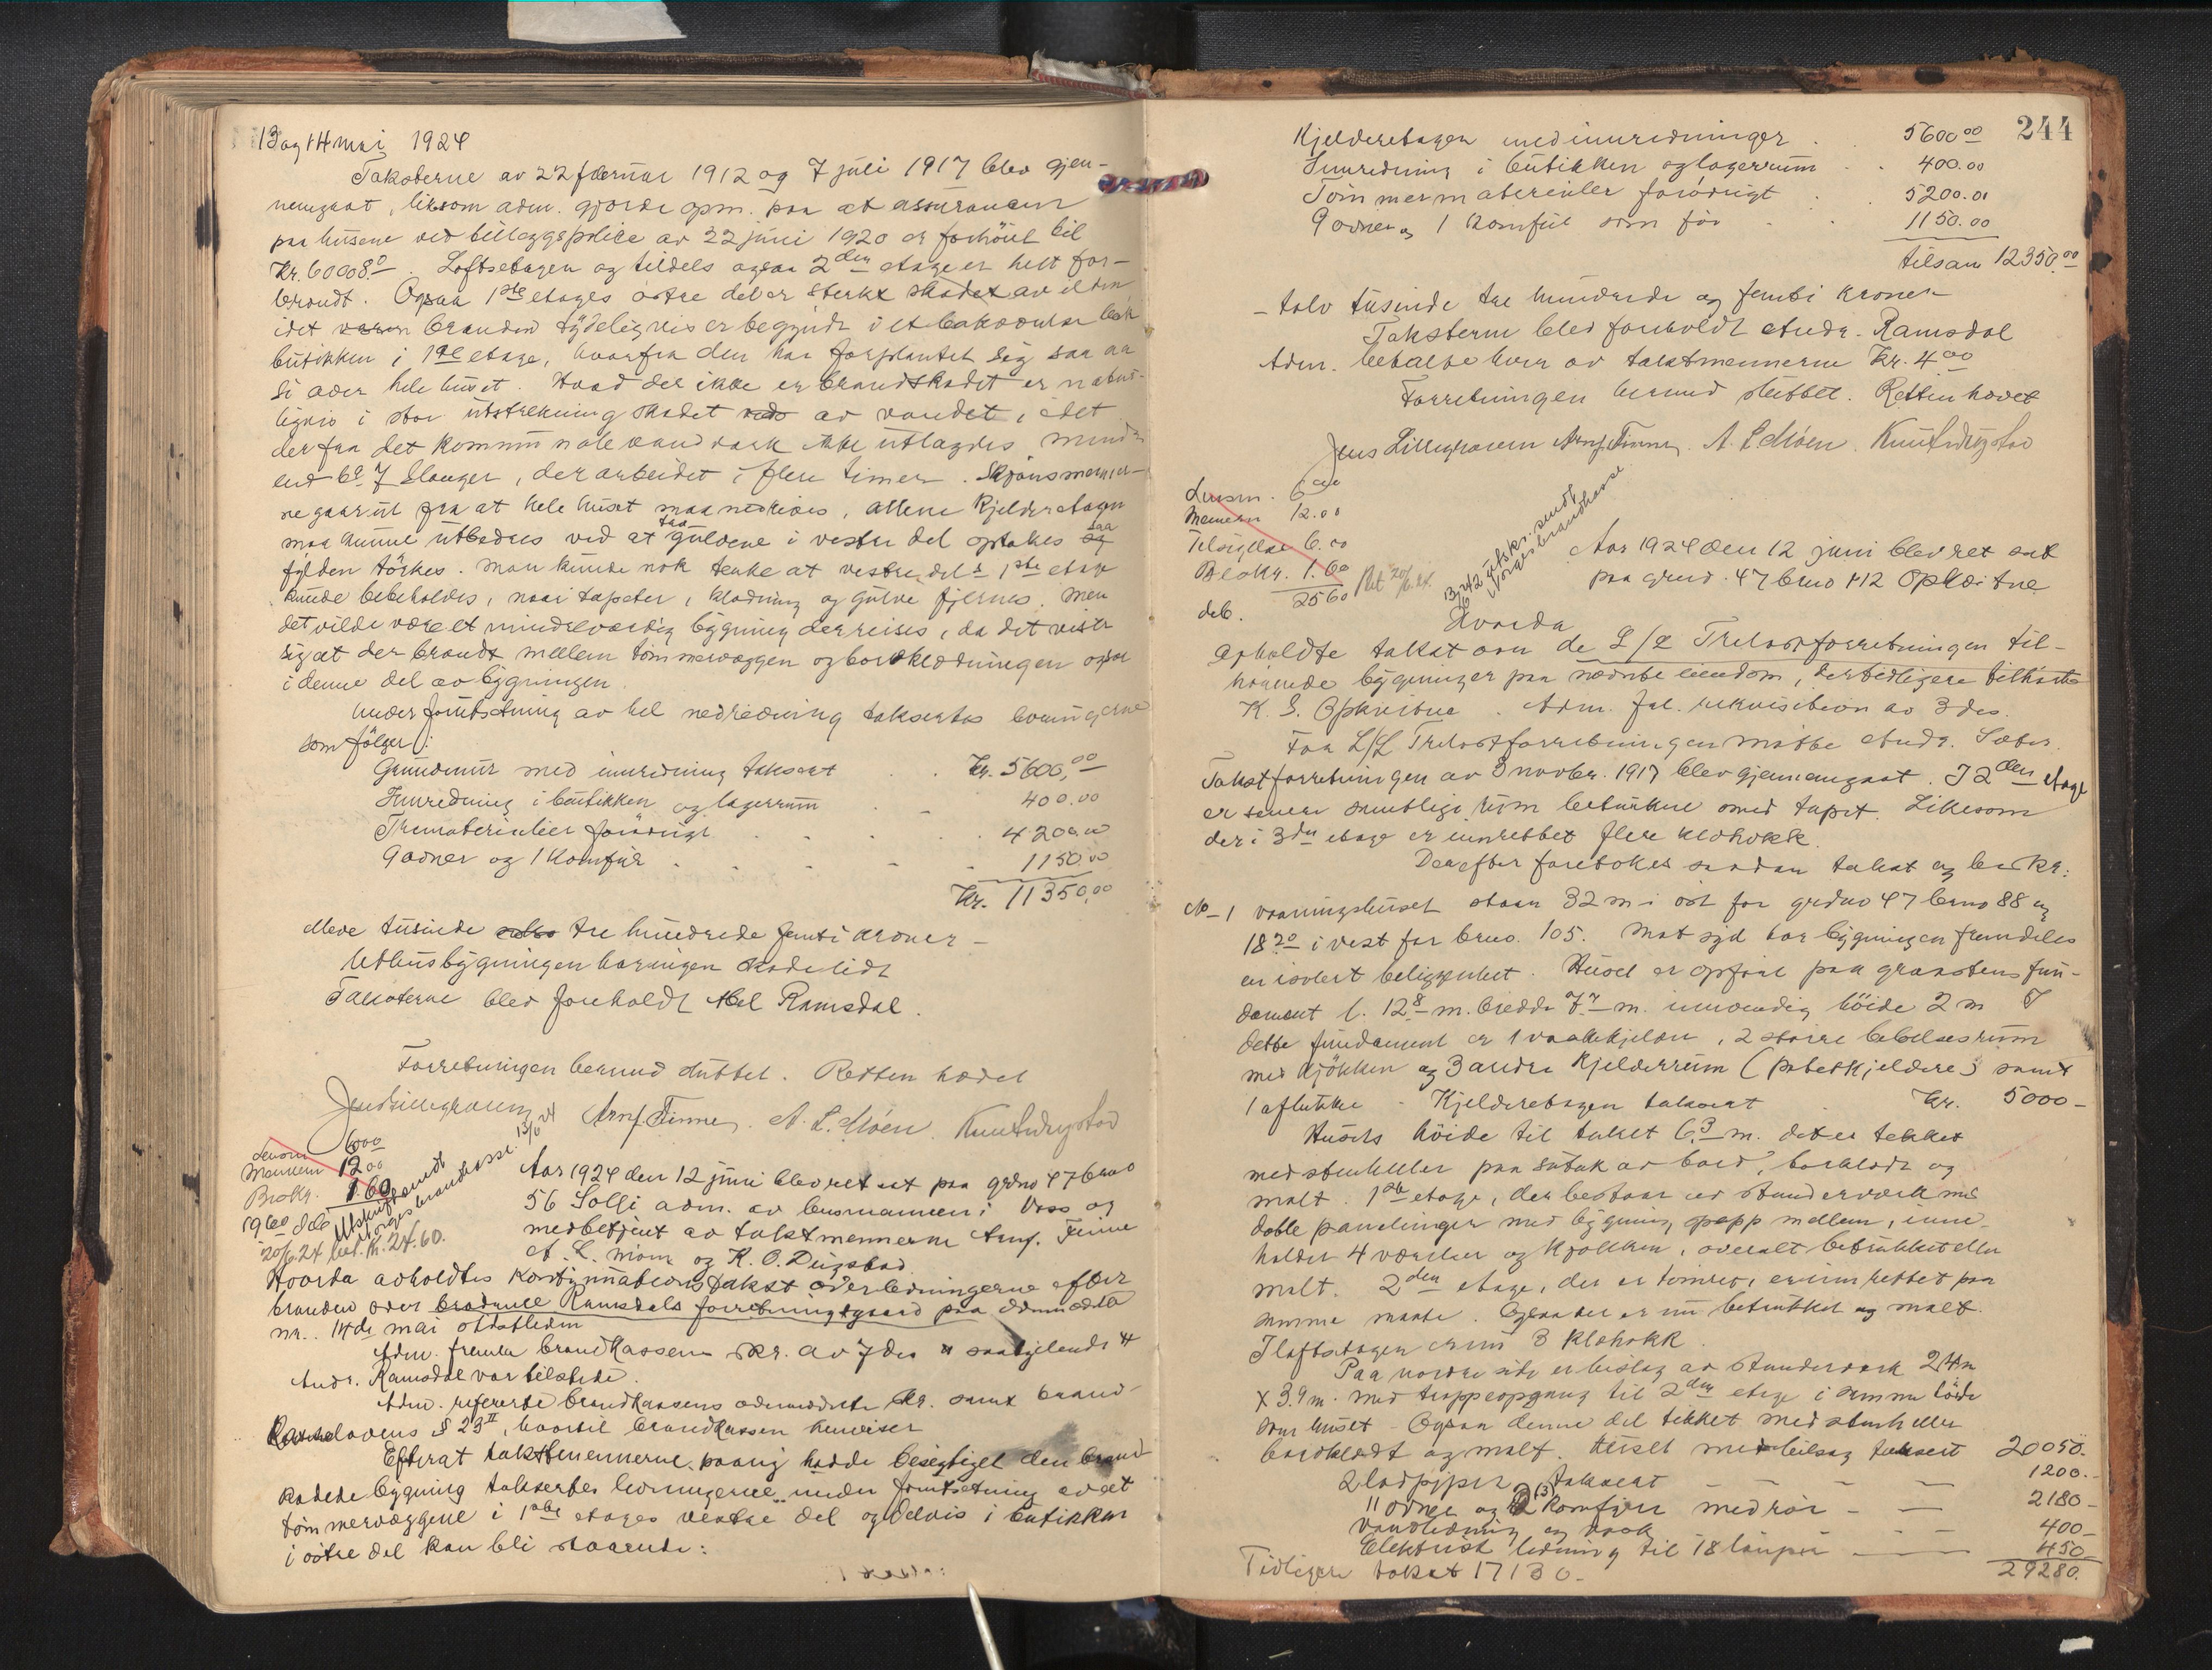 13 og 14 mai 1924
Taksterne av 22 februar 1912 og 7 juli 1917 blev gjen-
nemgaat, liksom adm. gjorde opm. paa at assurancen
paa husene ved tillægspolice av 22 juni 1920 er forhöiet til
Kr. 60008.0. Loftsetagen og tildels ogsaa 2den etage er helt for-
brændt. Ogsaa 1ste etages östre del er sterkt skadet av ilden
idet branden tydeligvis er begyndt i et bakværelse bak
butikken i 1ste etage, hvorfra den har forplantet sig saa at
si over hele huset. Hvad der ikke er brandskadet er natur-
ligvis i stor utstrekning skadet av vandet, idet
der fra det kommunale vandverk ikke utlagdes mindre
end 6 à 7 slanger, der arbeidet i flere timer. Skjönsmænner-
ne gaar ut fra at hele huset maa nedrives, allene kjelderetagen
maa kunne utbedres ved at gulvene i vestre del optakes saa
fylden törkes. Man kunde nok tænke at vestre del i 1ste etage
kunde beholdes, naar tapeter, klædning og gulve fjernes. Men
det vilde være et mindreværdig bygning der reises, da det viste
sig at der brændt mellem tömmervæggen og bordklædningen ogsaa
i denne del av bygningen.
Under forutsætning av hel nedrivning takseres levningerne
som fölger:
Grundmur med innredning taksert . . Kr. 5600,00
Innredning i butikken og lagerrum . - 400.00
Træmaterialier forövrigt . . . . 4200.00
9 ovner og 1 komfur - . - - - 1150.00
Kr. 11350,00
elleve tusinde tre hundrede femti kroner -
Uthusbygningen har ingen skade lidt
Taksterne blev foreholdt Abel Ramsdal.
Forretningen dermed sluttet. Retten hævet
Jens Lillegraven Arnf. Finne. A. L. Möen. Knut Dugstad
Lensm 6.00
Mænnene 12.00
Brokr. 1.60
19.60 deb
Utskrift sendt
Norges brandkasse. 13/6 24
20/6 24 bet. kr. 24.60.
Aar 1924 den 12 juni blev ret sat paa grdno 47 brno
56 Solli adm. av lensmannen i Voss og
medbetjent av takstmennerne Arnf. Finne
A. L. Möen og K. O. Dugstad
Hvorda avholdtes kontinuationstakst over levningerne efter
branden over Brödrene Ramsdals forretningsgaard paa ovennævnte
nr. 14de mai sidstleden
Adm. fremla brandkassens skr. av 7 ds saalydende
Andr. Ramsdal var tilstede.
Adm. refererte brandkassens ovennævnte skr. samt brand-
kasselovens § 23 II, hvortil brandkassen henviser
Efterat takstmennerne paany hadde besigtiget den brand-
skadede bygning takseres levningerne under forutsetning av at
tömmervæggene i 1ste etages vestre del og delvis i butikken
i östre del kan bli staaende:
244
Kjelderetagen med innredninger . . 5600.00
Innredning i butikken og lagerrum . . 400.00
Tömmermaterialer forövrigt . . 5200.00
9 ovner og 1 komfur som för . . 1150.00
tilsam 12350.00
- tolv tusinde tre hundrede og femti kroner
Taksterne blev foreholdt Andr. Ramsdal
Adm. betalte hver av takstmennerne Kr. 4.00
Forretningen dermed sluttet. Retten hævet
Jens Lillegraven Arnf. Finne. A. L. Möen. Knut Dugstad
Lensm. 6.00
Mænnene 12.00
Tilsigelse 6.00
Brokr. 1.60
25.60
deb.
Bet 20/6 24.
13/6 24 2 utskr. sendt
Norges brandkasse
Aar 1924 den 12 juni blev ret sat
paa grdno. 47 brno 112 Opheitne
Hvorda
avholdte takst over de L/L Trelastforretningen til-
hörende bygninger paa nævnte eiendom, der tidligere tilhörte
K. S. Opheitne. Adm. fol. rekvisition av 3 ds.
For L/L Trelastforretningen mötte Andr. Sæter.
Takstforretningen av 3 novbr. 1917 blev gjennemgaat. I 2den etage
er senere samtlige rum betrukne med tapet. Likesom
der i 3die etage er innrettet flere klæskott.
Derefter foretokes saadan takst og beskr:
No 1 vaaningshuset staar 32 m i öst for grdno 47 brno 88 og
18.20 i vest for brno. 105. Mot syd har bygningen fremdeles
en isolert beliggenhet. Huset er opfört paa graastensfun-
dament l. 12.8 m. bredde 7.7 m. innvendig höide 2 m I
dette fundament er 1 vaskekjelder, 2 större beboelsesrum
med kjökken og 3 andre kjelderrum (potetkjeldere) samt
1 aflukke - Kjelderetagen taksert . Kr. 5000 -
Husets höide til taket 6.3 m. det er tekket
med stenheller paa sutak av bord, bordklædt og
malt. 1ste etage, der bestaar av stenderverk med
doble panelinger med bygningspapp mellem, inne-
holder 4 værelser og kjökken, overalt betrukket eller
malt. 2den etage, der er tömret, er innrettet paa
samme maate. Ogsaa det er nu betrukket og malt.
I loftsetagen er nu 3 klæskott.
Paa nordre side er bislag av stenderverk 2.4 m
x 3.9 m. med trappeopgang til 2den etage i samme höide
som huset - Ogsaa denne del tekket med stenheller
bordklædt og malt. Huset med bislag taksert 20050.
2 lodpiper taksert - - - 1200.-
11 ovner og 2 (3) komfyrer med rör - - 2180 -
vandledning og vask - - 400 -
Elektrisk ledning til 18 lamper - - 450 -
Tidligere takst 17130.- 29280.